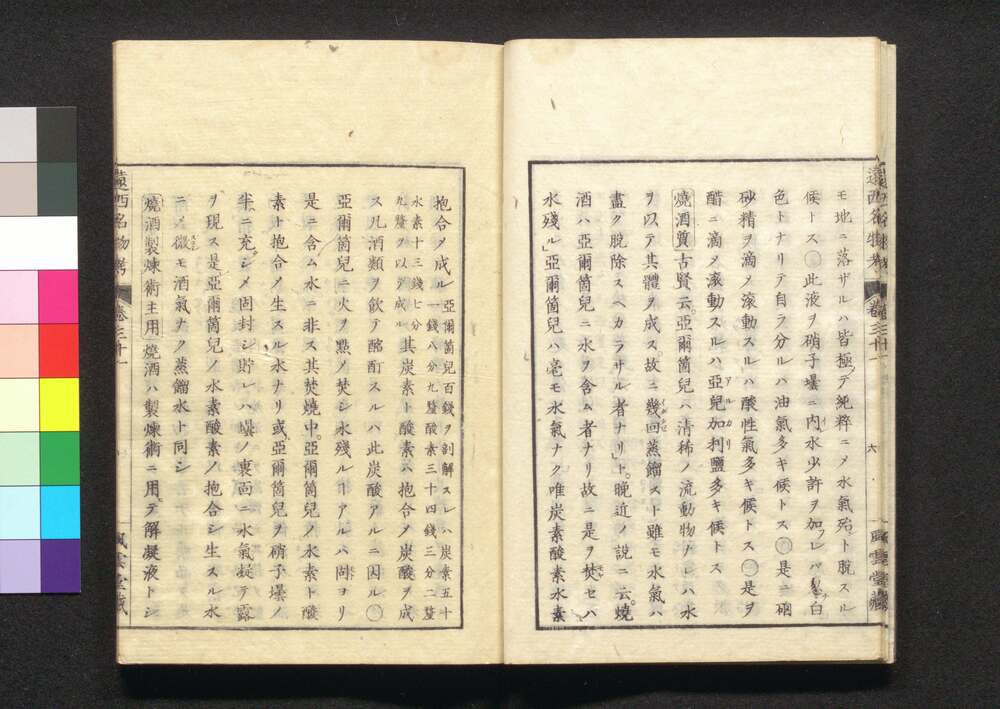 モ地ニ落ザルハ皆極テ純粋ニメ水氣殆ト脱スル
候トス○此液ヲ硝子壜ニ内水少許ヲ加フレバ白
色トナリテ自ラ分ルハ油氣多キ候トス○是ニ硇
砂精ヲ滴メ滾動スルハ酸性氣多キ候トス○是ヲ
醋ニ滴メ滾動スルハ亞兒加利鹽多キ候トス
アルカリ
燒酒質古賢云亞爾箇兒ハ清稀ノ流動物アレハ水
ヲ以テ其體ヲ成ス故ニ幾回蒸餾スト雖モ水氣ハ
盡ク脱除スベカラサル者ナリ」ト晩近ノ說ニ云燒
酒ハ亞爾箇兒ニ水ヲ含ム者ナリ故ニ是ヲ焚セハ
水残ル」亞爾箇兒ハ毫モ水氣ナク唯炭素酸素水素
遠西名物考
卷三十一
六
風雲堂藏
抱合メ成ル亞爾箇兒百錢ヲ剖解スレハ炭素五十
一錢八分九釐酸素三十四錢三分二釐
水素十三錢七分
九釐ヲ以テ成ル其炭素ト酸素ハ抱合メ炭酸ヲ成
ス凡酒類ヲ飲テ酩酊スルハ此炭酸アルニ因ル○
亞爾箇兒ニ火ヲ點メ焚シ水残ルヿアルハ固ヨリ
是ニ含ム水ニ非ス其焚燒中亞爾箇兒ノ水素ト酸
素ト抱合メ生スル水ナリ或亞爾箇兒ヲ硝子壜ノ
半ニ充シメ固封シ貯レハ壜ノ裏面ニ水氣凝テ露
ヲ現ス是亞爾箇兒ノ水素酸素ノ抱合シ生スル水
ニメ微モ酒氣ナク蒸餾水ト同シ
燒酒製煉術主用燒酒ハ製煉術ニ用テ解凝液トシ
遠西名物考
卷三十一
風雲堂藏